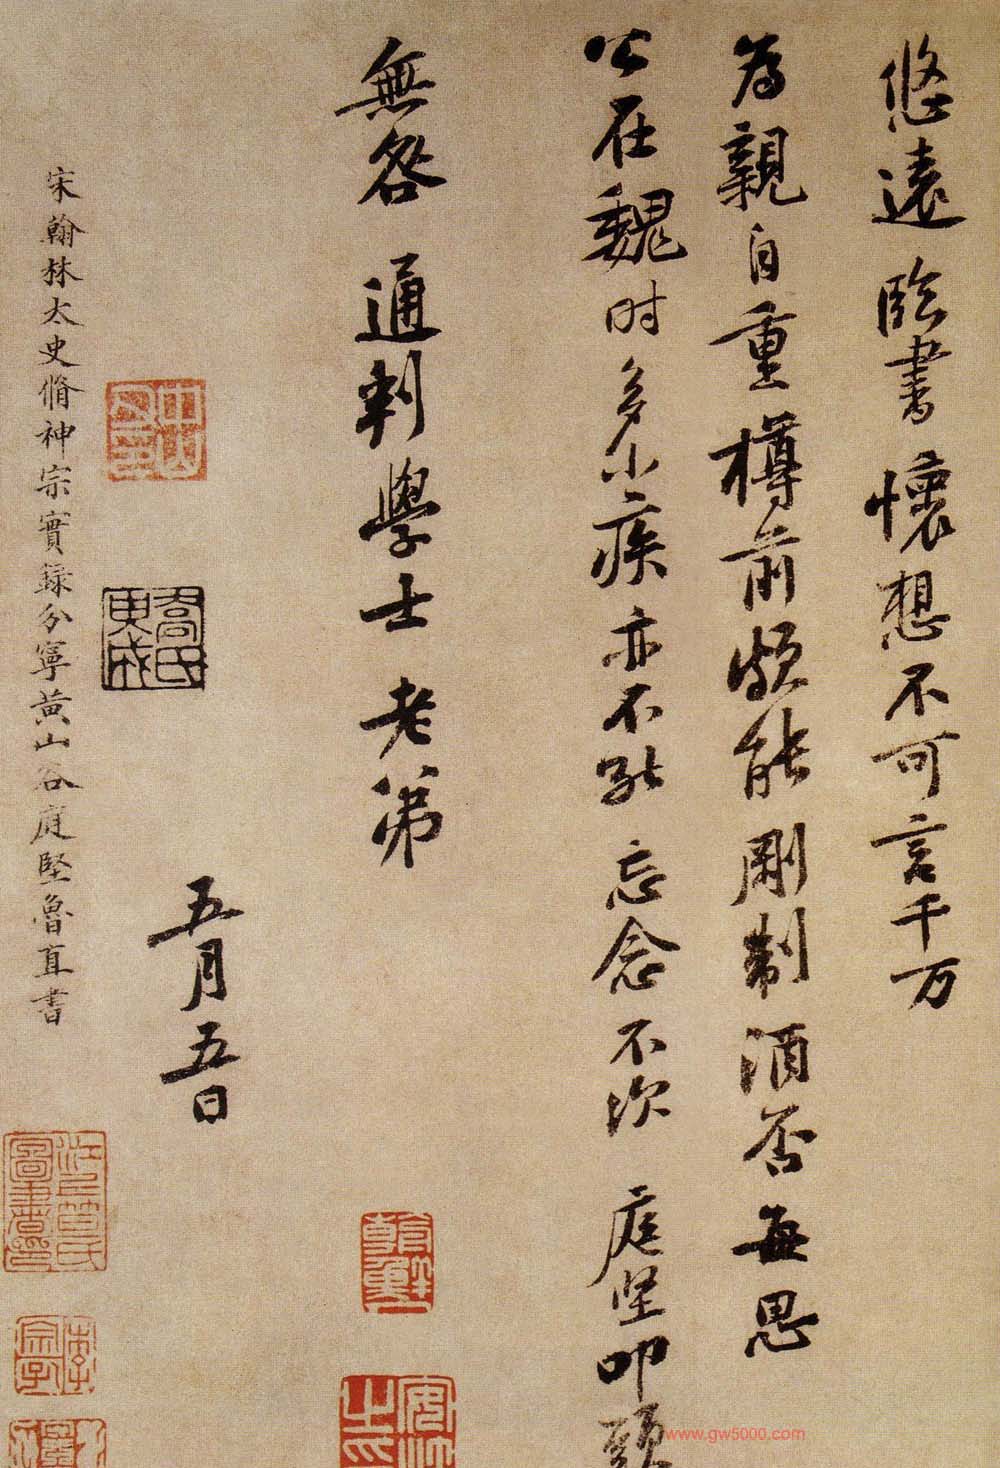 悠遠臨書懷想不可言千万
為親自重樽前頗能剛制酒否每思
公在魏时多小疾亦不能忘念不次庭坚叩頭
無咎通判學士老弟
五月五日
宋翰林太史脩神宗實録分寧黃山谷庭堅魯直書
喬氏
www.gw5000.com